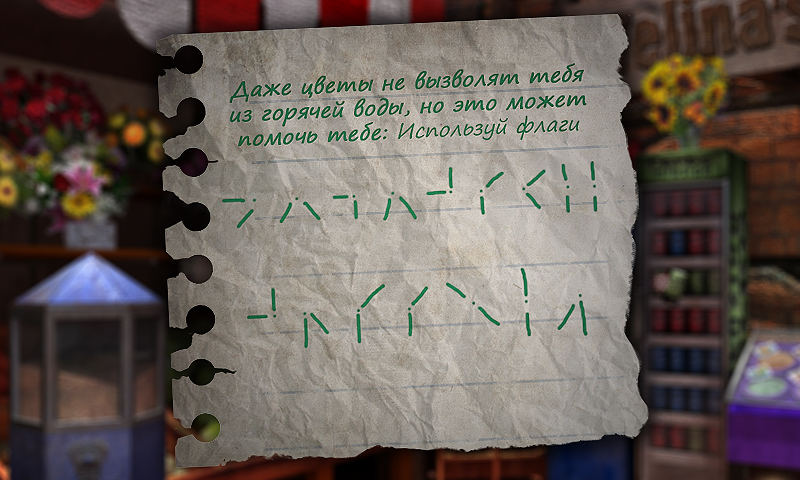 elina's
Даже цветы не вызволят тебя
из горячей воды, но это может
помочь тебе: Используй флаги